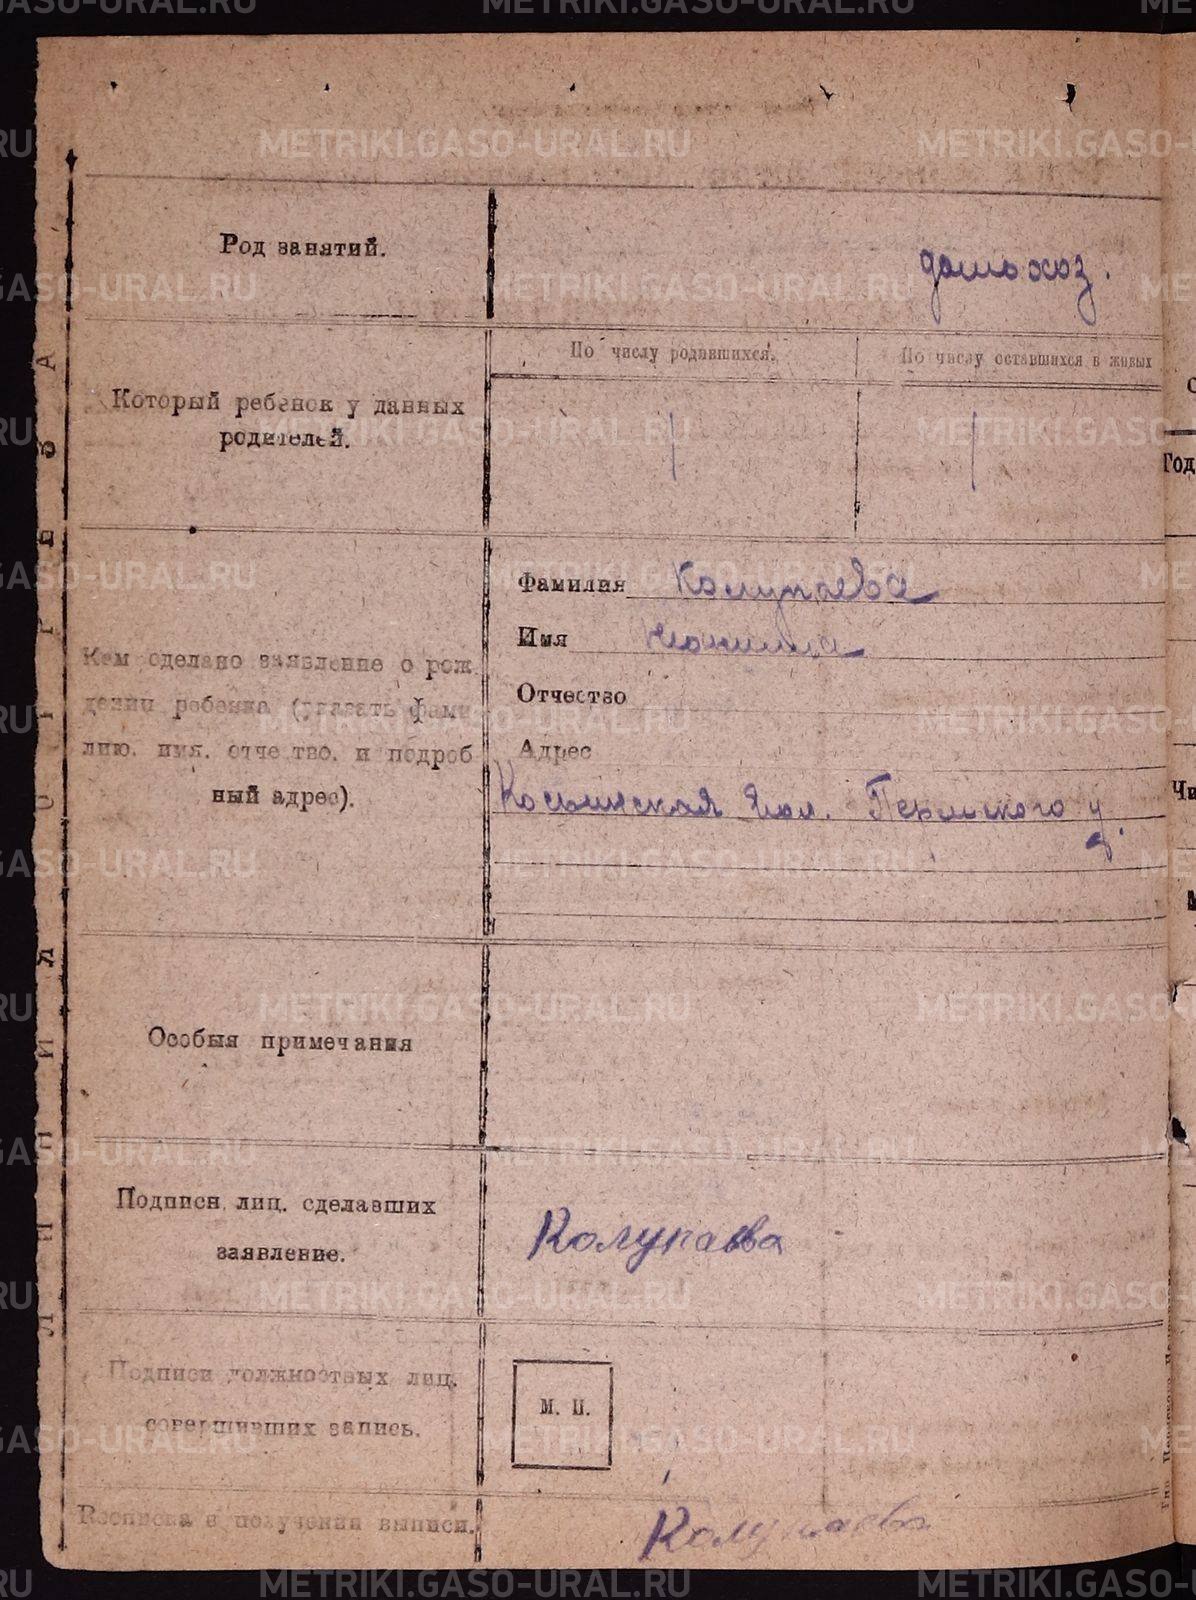 Род занятий.
домохоз.
Который ребенок у данных
родителей.
По числу родившихся.
По числу оставшихся в живых
1
1
Кем сделано заявление о рож
дении ребенка (указать фами
лию. имя. отчество. и подроб
ный адрес).
Фамилия Колупаева
Имя
Отчество
Адрес
Вол. Пермского у.
Особыя примечания
Подписи лиц. сделавших
заявление.
Колупаева
Подписи должностных лиц.
совершивших запись.
М. П.
Расписка в получении выписи.
Колупаева
Год
Чи
METRIKI.GASO-URAL.RU